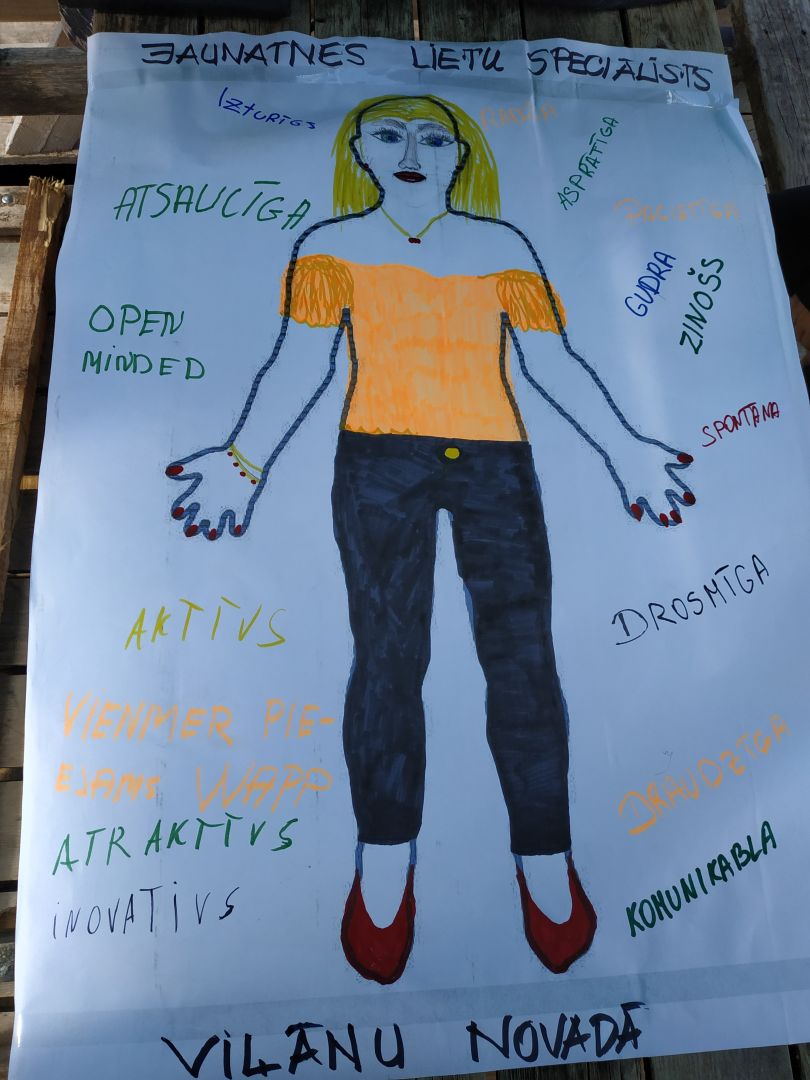 JAUNATNES LIETU SPECIĀLISTS
IZTURĪGS
RADOŠA
ASPRĀTĪGA
ATSAUCĪGA
PACIETĪGA
GUDRA
ZINOŠS
OPEN
MINDED
SPONTĀNA
DROSMĪGA
AKTĪVS
VIENMĒR PIE-
EJAMS WAPP
DRAUDZĪGA
ATRAKTĪVS
KOMUNIKABLA
INOVATĪVS
VIĻĀNU NOVADĀ